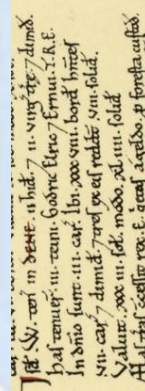 Isđ. W. teñ in DENE. ii. hid̃. 7 ii. virg̃ træ. 7 dimiđ.
has tenueř. iii. teini. Godric Elric 7 Ernui. T.R.E.
In dñio sunt. iii. car̃. Ibi. xxxviii. borđ hñtes
vii. car̃ 7 dimiđ. 7 tres ex eis redđt viii. soliđ.
Valuit. xxxiii. soł. modo. xliiii. soliđ.
Has tras c̄cessit rex. E. q̇etas a gelđo. p foresta custođ.